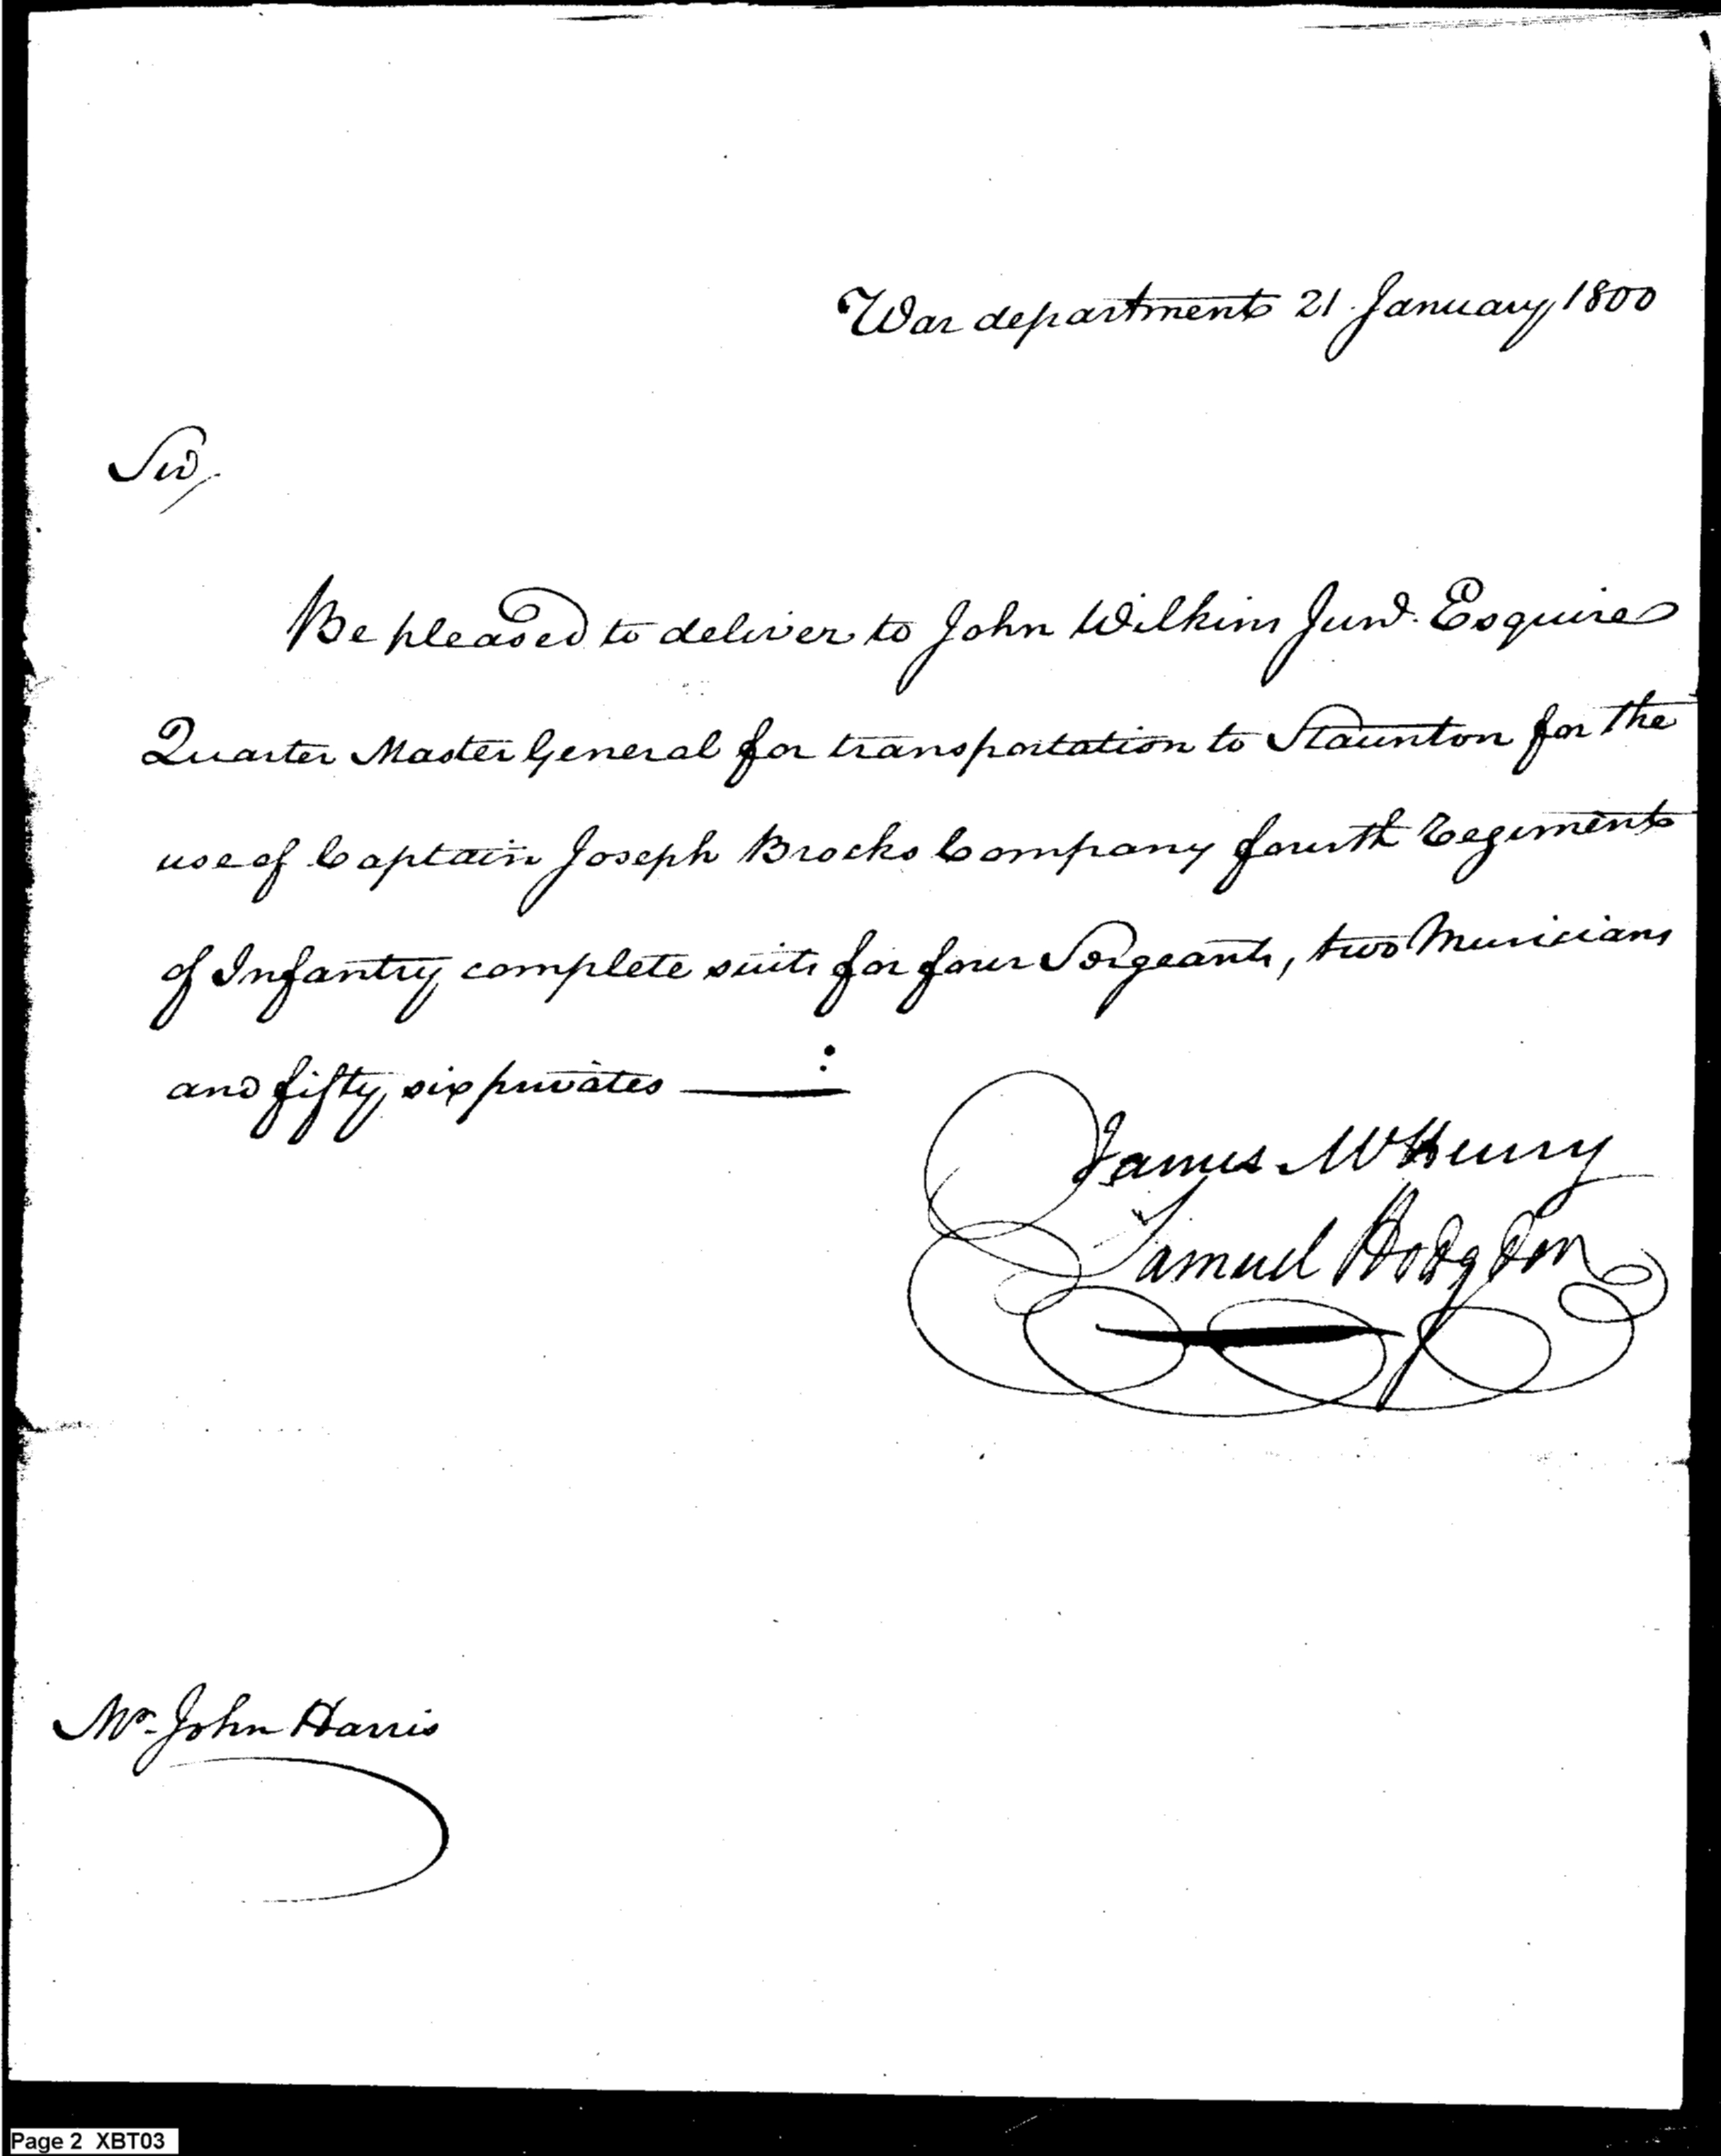 War department 21 January 1800
Sir,
Be pleased to deliver to John Wilkins Junr. Esquire
Quarter Master General for transportation to Staunton for the
use of Captain Joseph Brocks Company fourth Regiment
of Infantry complete suits for four Sergeants, two Musicians
and fifty six privates
James McHenry
Samuel Hodgdon
Mr. John Harris
Page 2 XBT03